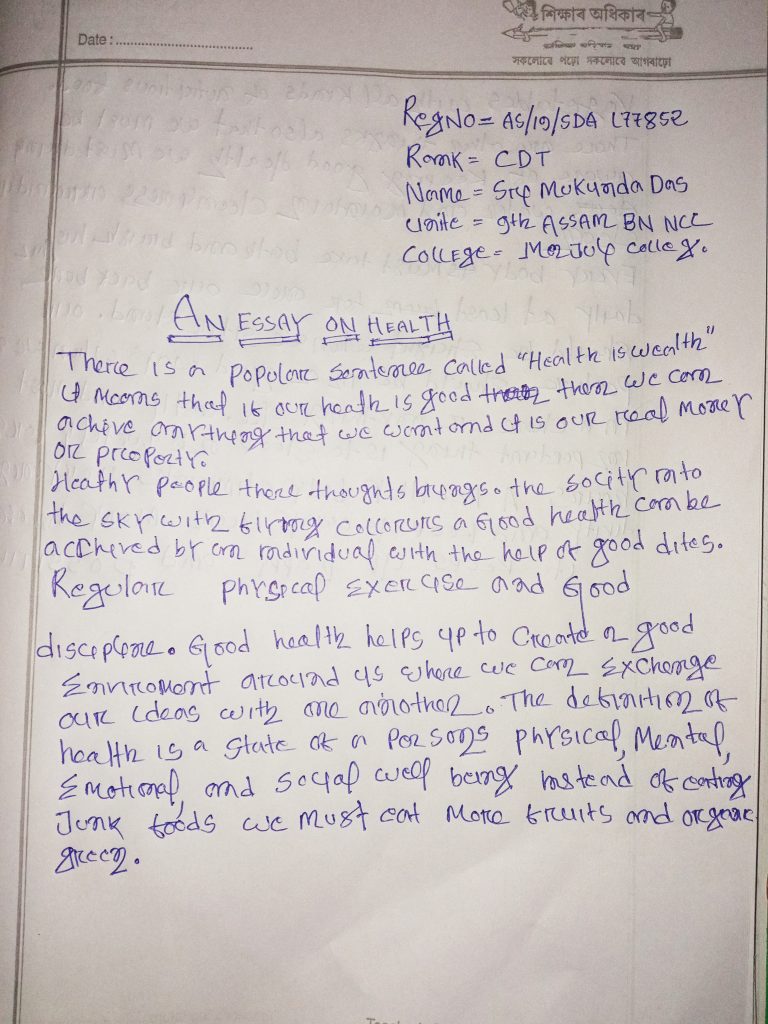 শিক্ষাৰ অধিকাৰ
Date :
সকলোৱে পঢ়ো সকলোৱে আগবাঢ়ো
RegNo = AS/19/SDA 177852
Rank = CDT
Name = Sri Mukunda Das
Unite = 9th ASSAM BN NCC
College = Majuli colleg.
AN ESSAY ON HEALTH
There is a popular sentence called "Health is wealth"
it means that if our heath is good then we can
achive anything that we want and it is our real money
or property.
Heathy people there thoughts brings. the socity into
the sky with flying collorurs a Good health can be
acchived by an individual with the help of good dites.
Regular physical Exercise and Good
discipline. Good health helps up to Create a good
Enviroment around us where we can Exchange
our ideas with one another. The definition of
health is a state of a persons physical, Mental,
Emotional, and social well being instead of eating
Junk foods we must eat more fruits and organic
green.